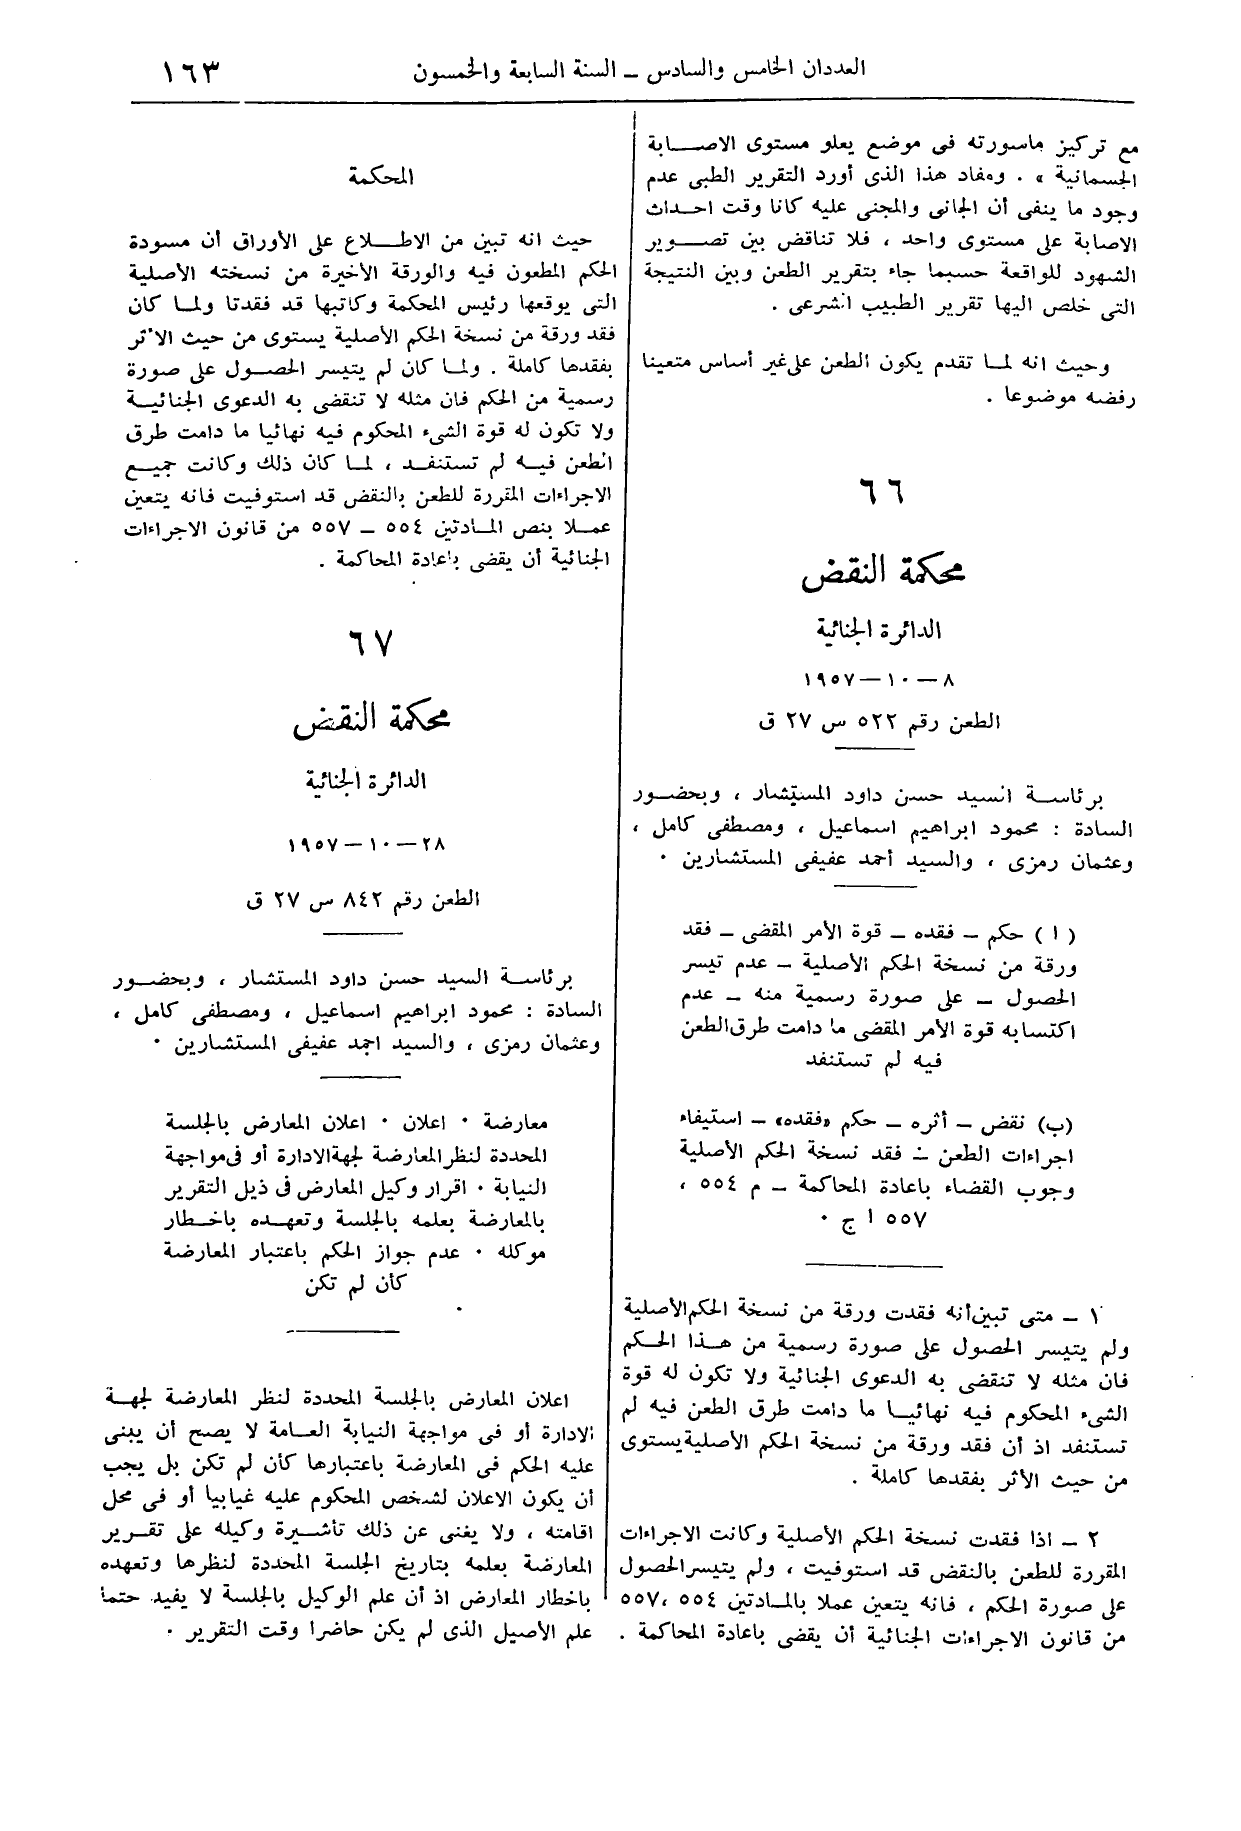 العددان الخامس والسادس ــ السنة السابعة والخمسون
١٦٣
مع تركيز ماسورته فى موضع يعلو مستوى الاصــابة
الجسمانية » . ومفاد هذا الذى أورد التقرير الطبى عدم
وجود ما ينفى أن الجانى والمجنى عليه كانا وقت احـداث
الاصابة على مستوى واحد ، فلا تناقض بين تصــوير
الشهود للواقعة حسبما جاء بتقرير الطعن وبين النتيجة
التى خلص اليها تقرير الطبيب الشرعى .
وحيث انه لمـا تقدم يكون الطعن على غير أساس متعينا
رفضه موضوعا .
٦٦
محكمة النقض
الدائرة الجنائية
٨ــ١٠ــ١٩٥٧
الطعن رقم ٥٢٢ س ٢٧ ق
برئاســة السيد حسن داود المستشار ، وبحضــور
السادة : محمود ابراهيم اسماعيل ، ومصطفى كامل ،
وعثمان رمزى ، والسيد أحمد عفيفى المستشارين .
( ا ) حكم ــ فقده ــ قوة الأمر المقضى ــ فقد
ورقة من نسخة الحكم الأصلية ــ عدم تيسر
الحصول ــ على صورة رسمية منه ــ عدم
اكتسابه قوة الأمر المقضى ما دامت طرق الطعن
فيه لم تستنفد
(ب) نقض ــ أثره ــ حكم «فقده» ــ استيفاء
اجراءات الطعن ــ فقد نسخة الحكم الأصلية
وجوب القضاء باعادة المحاكمة ــ م ٥٥٤ ،
٥٥٧ ا ج .
١ ــ متى تبين أنه فقدت ورقة من نسخة الحكم الأصلية
ولم يتيسر الحصول على صورة رسمية من هــذا الحـكم
فان مثله لا تنقضى به الدعوى الجنائية ولا تكون له قوة
الشىء المحكوم فيه نهائيــا ما دامت طرق الطعن فيه لم
تستنفد اذ أن فقد ورقة من نسخة الحكم الأصلية يستوى
من حيث الأثر بفقدها كاملة .
٢ ــ اذا فقدت نسخة الحكم الأصلية وكانت الاجراءات
المقررة للطعن بالنقض قد استوفيت ، ولم يتيسر الحصول
على صورة الحكم ، فانه يتعين عملا بالمـادتين ٥٥٤ ،٥٥٧
من قانون الاجراءات الجنائية أن يقضى باعادة المحاكمة .
المحكمة
حيث انه تبين من الاطــلاع على الأوراق أن مسودة
الحكم المطعون فيه والورقة الأخيرة من نسخته الأصلية
التى يوقعها رئيس المحكمة وكاتبها قد فقدتا ولمـا كان
فقد ورقة من نسخة الحكم الأصلية يستوى من حيث الأثر
بفقدها كاملة . ولمـا كان لم يتيسر الحصـول على صورة
رسمية من الحكم فان مثله لا تنقضى به الدعوى الجنائيــة
ولا تكون له قوة الشىء المحكوم فيه نهائيا ما دامت طرق
الطعن فيــه لم تستنفــد ، لمـا كان ذلك وكانت جميــع
الاجراءات المقررة للطعن بالنقض قد استوفيت فانه يتعين
عمــلا بنص المـادتين ٥٥٤ ــ ٥٥٧ من قانون الاجراءات
الجنائية أن يقضى باعادة المحاكمة .
٦٧
محكمة النقض
الدائرة الجنائية
٢٨ــ١٠ــ١٩٥٧
الطعن رقم ٨٤٢ س ٢٧ ق
برئاســة السيد حسن داود المستشار ، وبحضــور
السادة : محمود ابراهيم اسماعيل ، ومصطفى كامل ،
وعثمان رمزى ، والسيد احمد عفيفى المستشارين .
معارضة . اعلان . اعلان المعارض بالجلسة
المحددة لنظر المعارضة لجهة الادارة أو فى مواجهة
النيابة . اقرار وكيل المعارض فى ذيل التقرير
بالمعارضة بعلمه بالجلسة وتعهــده باخـطار
موكله . عدم جواز الحكم باعتبار المعارضة
كأن لم تكن
اعلان المعارض بالجلسة المحددة لنظر المعارضة لجهــة
الادارة أو فى مواجهة النيابة العــامة لا يصح أن يبنى
عليه الحكم فى المعارضة باعتبارها كأن لم تكن بل يجب
أن يكون الاعلان لشخص المحكوم عليه غيابيا أو فى محل
اقامته ، ولا يغنى عن ذلك تأشــيرة وكيله على تقــرير
المعارضة بعلمه بتاريخ الجلسة المحددة لنظرها وتعهده
باخطار المعارض اذ أن علم الوكيل بالجلسة لا يفيد حتما
علم الأصيل الذى لم يكن حاضرا وقت التقرير .